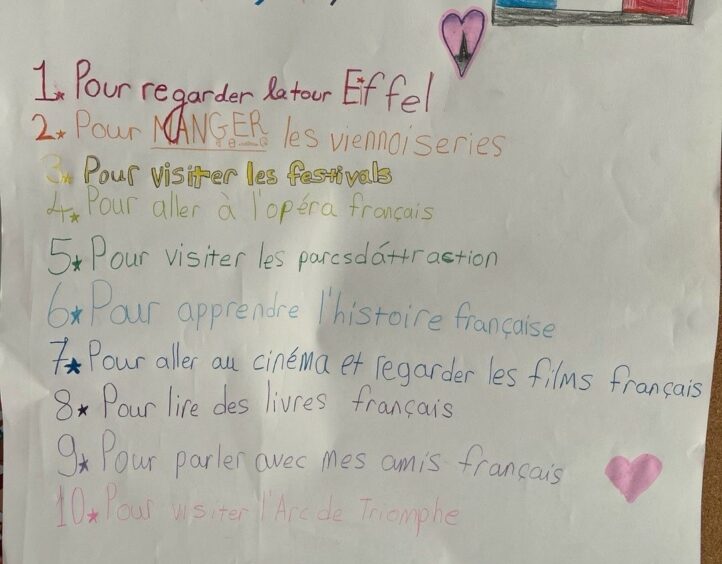 1. Pour regarder la tour Eiffel
2. Pour MANGER les viennoiseries
3. Pour visiter les festivals
4. Pour aller à l'opéra français
5. Pour visiter les parcsdáttraction
6. Pour apprendre l'histoire française
7. Pour aller au cinéma et regarder les films français
8. Pour lire des livres français
9. Pour parler avec mes amis français
10. Pour visiter l'Arc de Triomphe